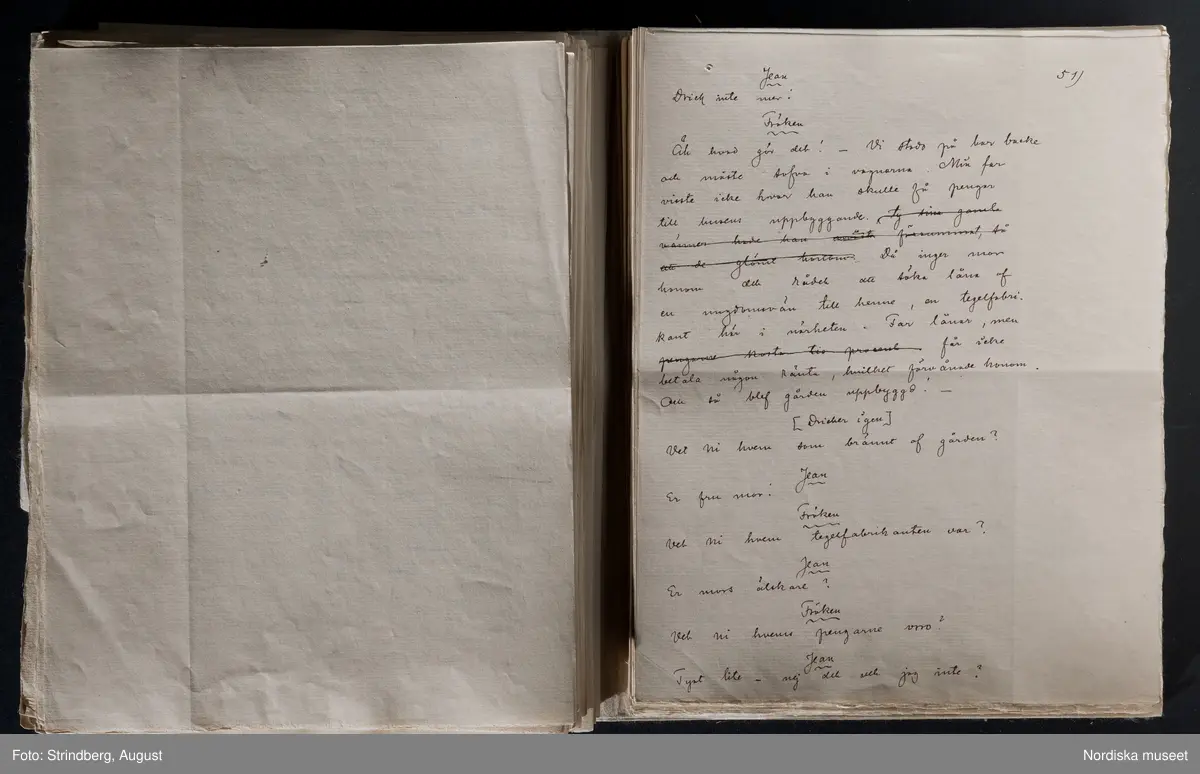 51)
Jean
Drick inte mer!
Fröken
Åh hvad gör det! — Vi stodo på bar backe
och måste sofva i vagnarna. Min far
visste icke hvar han skulle få pengar
till husens uppbyggande. ty sina gamla
vänner hade han måst försummat, så
att de glömt honom. Då inger mor
honom det rådet att söka låna af
en ungdomsvän till henne, en tegelfabri-
kant här i närheten. Far lånar, men
pengarne kosta tio procent får icke
betala någon ränta, hvilket förvånade honom.
Och så blef gården uppbyggd! —
[Dricker igen]
Vet Ni hvem som brännt af gården?
Jean
Er fru mor!
Fröken
Vet Ni hvem tegelfabrikanten var?
Jean
Er mors älskare?
Fröken
Vet Ni hvems pengarne voro?
Jean
Tyst lite — nej det vet jag inte?
Foto: Strindberg, August
Nordiska museet